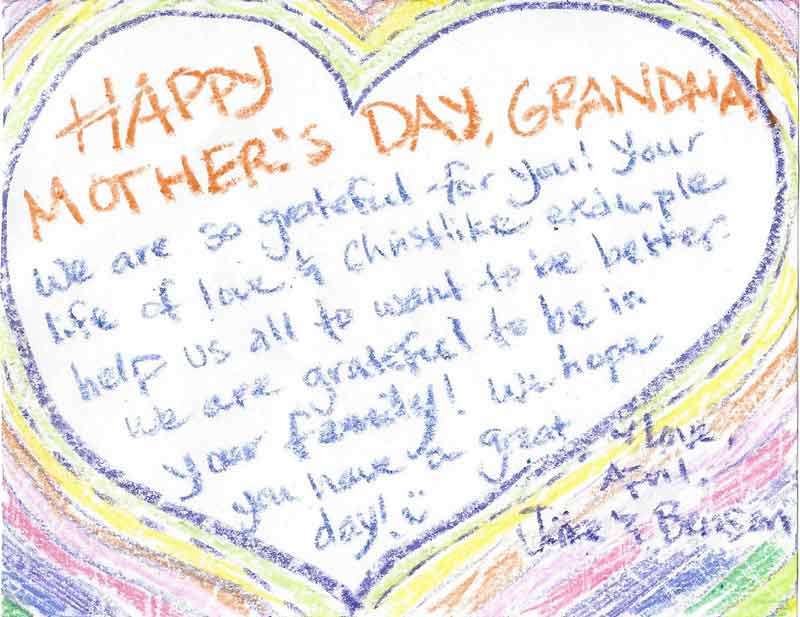 HAPPY
MOTHER'S DAY, GRANDMA!
We are so grateful for you! Your
life of love & Christlike example
help us all to want to better.
We are grateful to be in
your family! We hope
you have a great
day! :)
Love,
& Benson